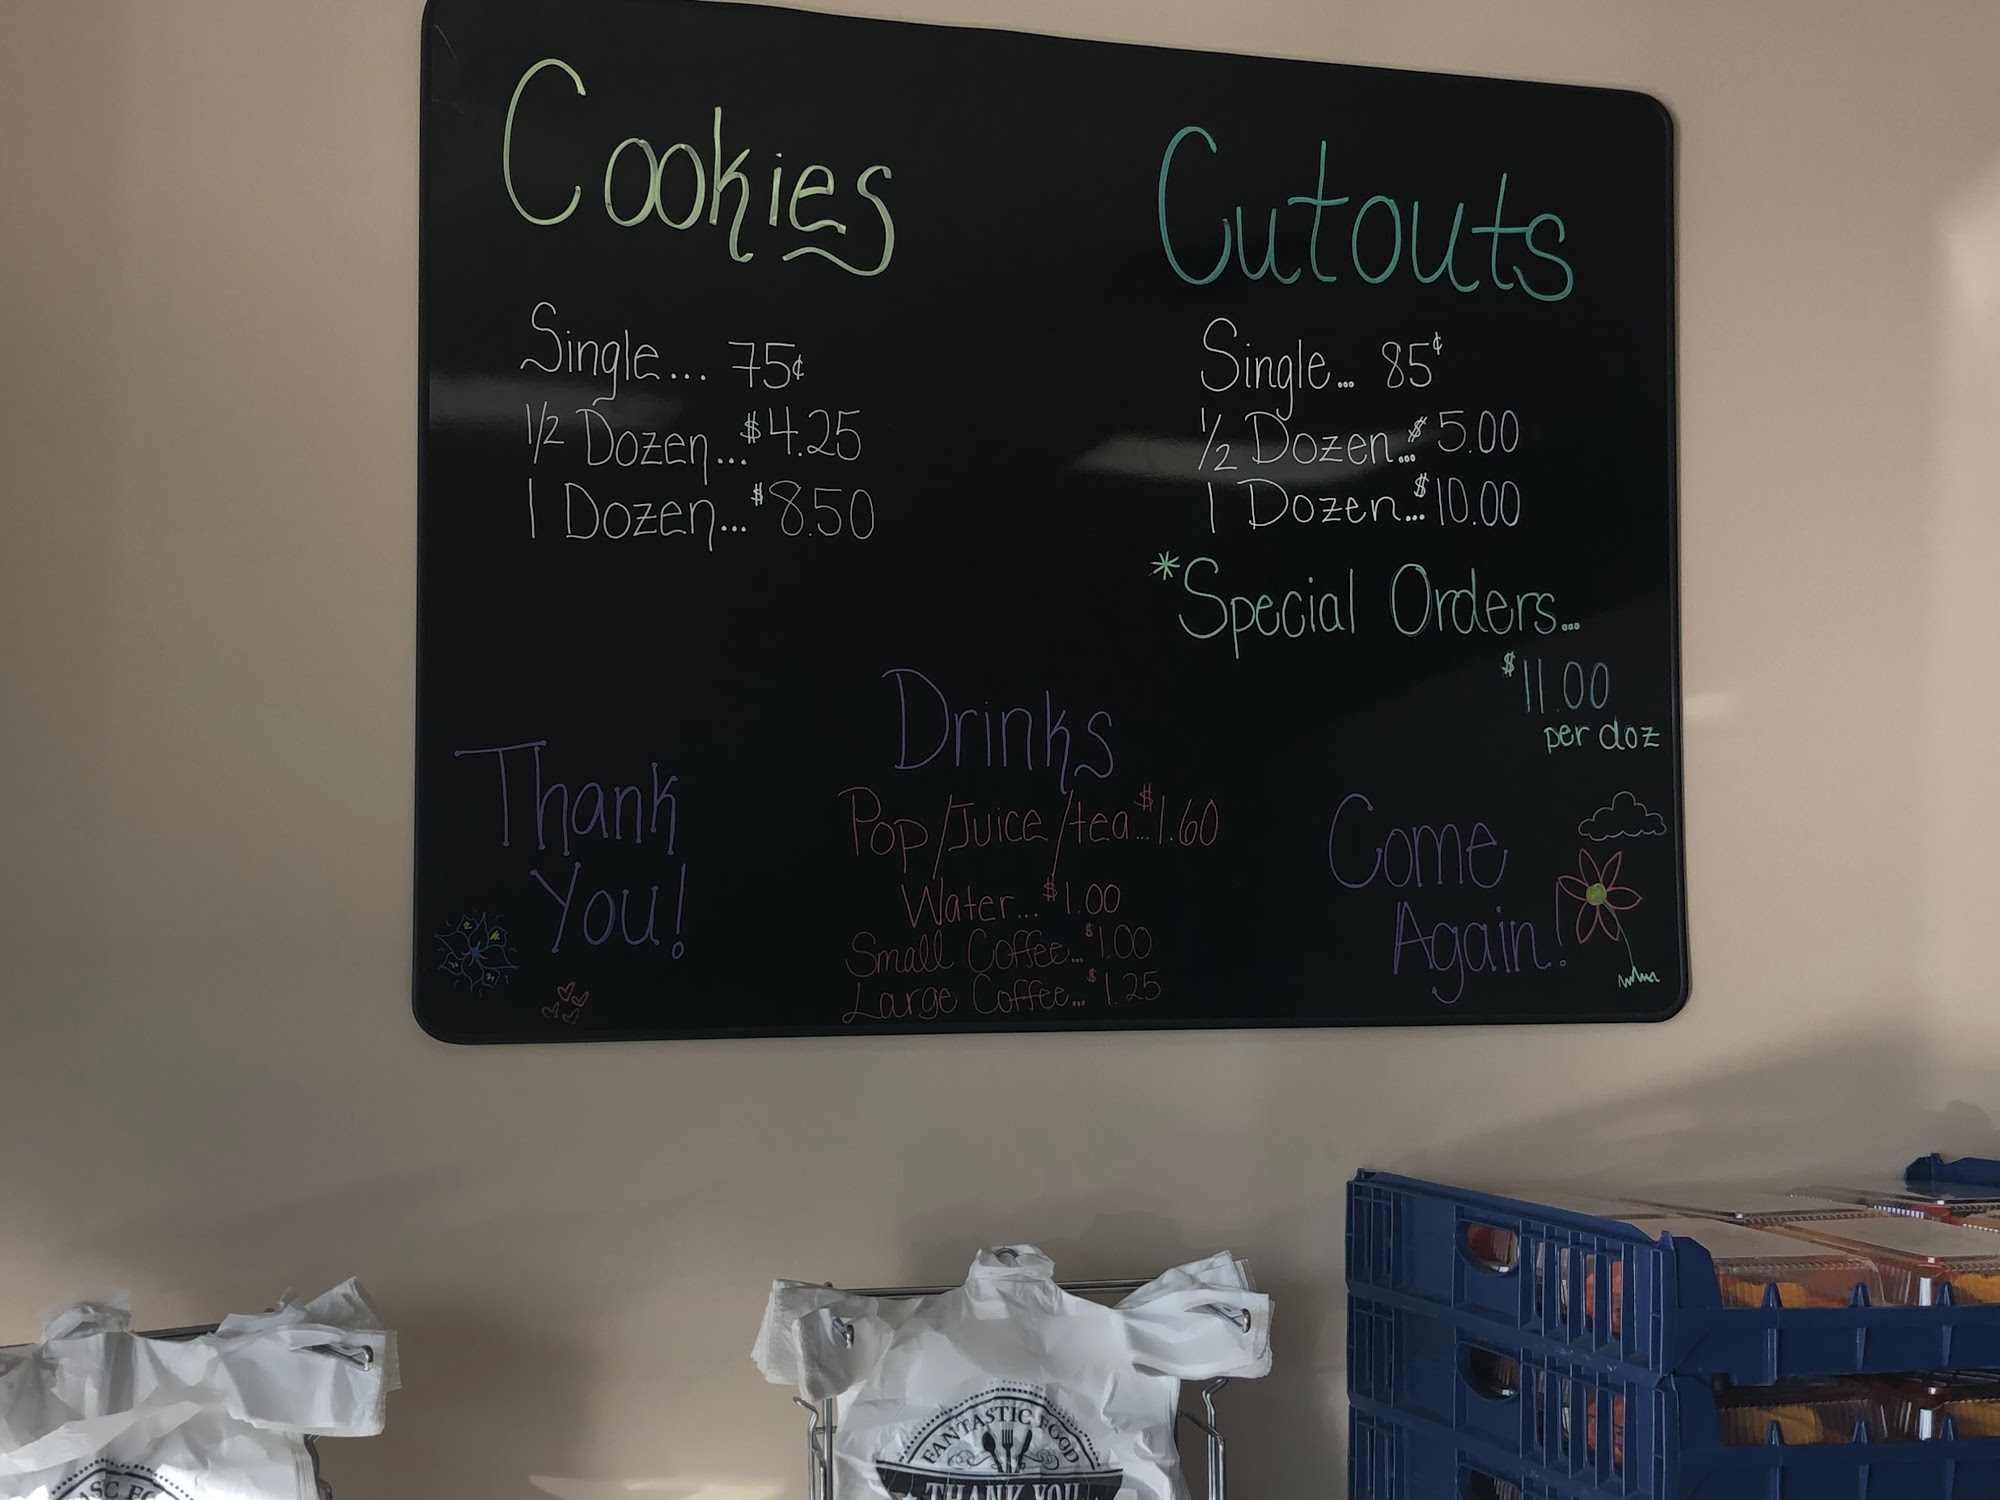 Cookies
Single... 75¢
1/2 Dozen...$4.25
1 Dozen...$8.50
Cutouts
Single... 85¢
1/2 Dozen...$5.00
1 Dozen...$10.00
*Special Orders...
$11.00
per doz
Drinks
Pop/Juice/tea...$1.60
Water...$1.00
Small Coffee...$1.00
Large Coffee...$1.25
Thank
You!
Come
Again!
FANTASTIC FOOD
THANK YOU